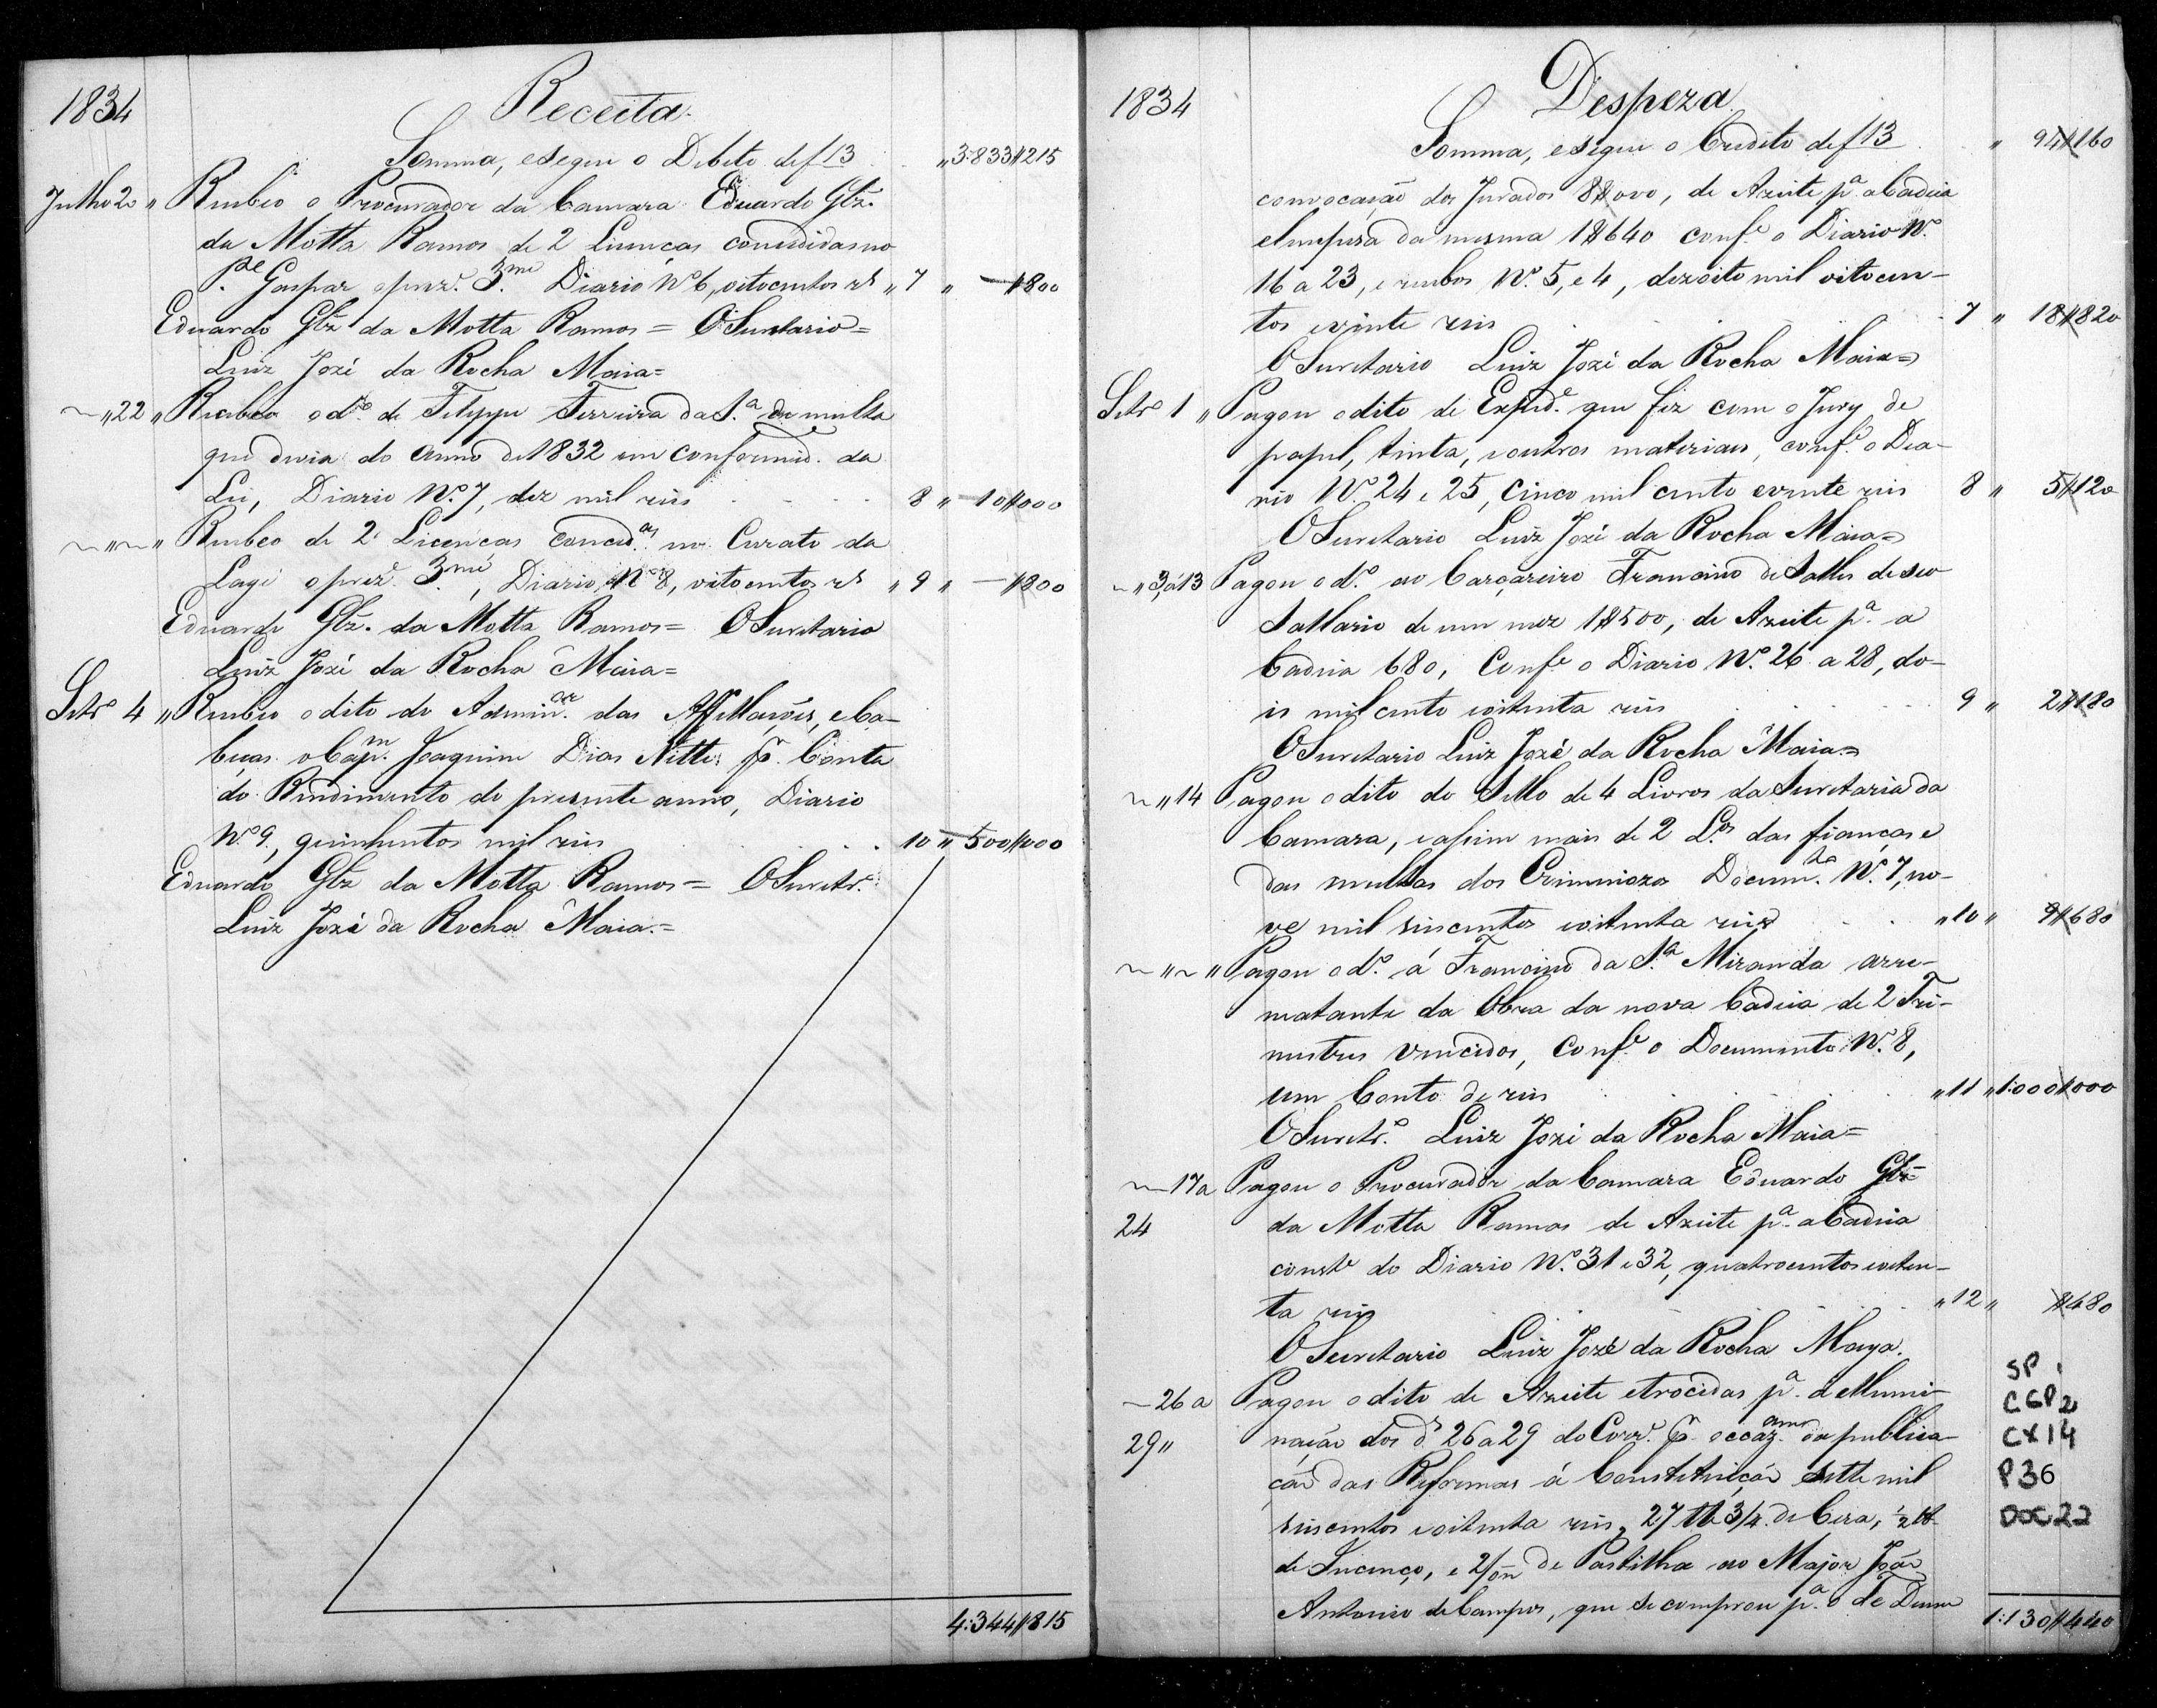 1834
Receita
Somma, e segue o Debito de f 13 " 3:833$215
Julho 20 " Recebeo o Procurador da Camara Eduardo Glz.
da Motta Ramos de 2 Licenças concedidas no
P.e Gaspar o prez.e 3.me Diario Nº 6, oitocentos rs " 7 " — $800
Eduardo Glz da Motta Ramos = O Secretario =
Luiz Jozé da Rocha Maia =
~ " 22 " Recebeo o d.o de Felippe Ferreira da S.a da multa
que devia do anno de 1832 em conformid.e da
Lei, Diario Nº 7, dez mil reis 8 " — 10$000
~ " ~ " Recebeo de 2 Licenças conced.as no Curato da
Lage o prez.e 3.me, Diario Nº 8, oitocentos rs " 9 " — $800
Eduardo Glz. da Motta Ramos = O Secretario
Luiz Jozé da Rocha Maia =
Setr.o 4 " Recebeo o dito do Admin.or das Affillações, e Ca-
beças o Cap.m Joaquim Dias Nitto p.r Conta
do Rendimento do presente anno, Diario
Nº 9, quinhentos mil reis 10 " 500$000
Eduardo Glz da Motta Ramos = O Secretr.o
Luiz Jozé da Rocha Maia. =
4:344$815
1834
Despeza
Somma, e segue o Credito de f 13 " 94$160
convocação dos Jurados 8$000, de Azeite p.a a Cadeia
e limpeza da mesma 1$640 conf.e o Diario Nº
16 a 23, e recibos Nº 5, e 4, dezoito mil oitocen-
tos e vinte reis 7 " 18$820
O Secretario Luiz Jozé da Rocha Maia =
Setr.o 1 " Pagou o dito de Exped.e que fez com o Jury de
papel, tinta, e outros materiaes, conf.e o Dia-
rio Nº 24 e 25, Cinco mil cento e vinte reis 8 " 5$120
O Secretario Luiz Jozé da Rocha Maia =
~ " 3, á 13 Pagou o d.o ao Carçareiro Francino de Salles de seo
Sallario de um mez 1$500, de Azeite p.a a
Cadeia 680, Conf.e o Diario Nº 26 a 28, do-
is mil cento e oitenta reis 9 " 2$180
O Secretario Luiz Jozé da Rocha Maia. =
~ " 14 Pagou o dito do Sello de 4 Livros da Secretaria da
Camara, e assim mais de 2 L.os das fianças e
das multas dos Criminozos Docum.to Nº 7, no-
ve mil seiscentos e oitenta reis " 10 " 9$680
~ " ~ " Pagou o d.o á Francino da S.a Miranda arre-
matante da Obra da nova Cadeia de 2 Tri-
mestres vencidos, Conf.e o Documento Nº 8,
um Conto de reis " 11 " 1:000$000
O Secretr.o Luiz Jozé da Rocha Maia =
~ 17 a Pagou o Procurador da Camara Eduardo Glz
24 da Motta Ramos de Azeite p.a a Cadeia
const.e do Diario Nº 31 e 32, quatrocentos e oiten-
ta reis " 12 " $480
O Secretario Luiz Jozé da Rocha Maya.
— 26 a Pagou o dito de Azeite e trocidas p.a a Illumi-
29 " nação dos d.s 26 a 29 do Corr.e p.r occaz.am da publica-
ção das Reformas á Constituição sette mil
seiscentos e oitenta reis, 27 lb 3/4 de Cera, 1/2 lb
de Incenço, e 2/on de Pastilha ao Major João
Antonio de Campos, que se comprou p.a o Te Deum
1:130$440
SP 1
CGP2
CX14
P36
DOC22